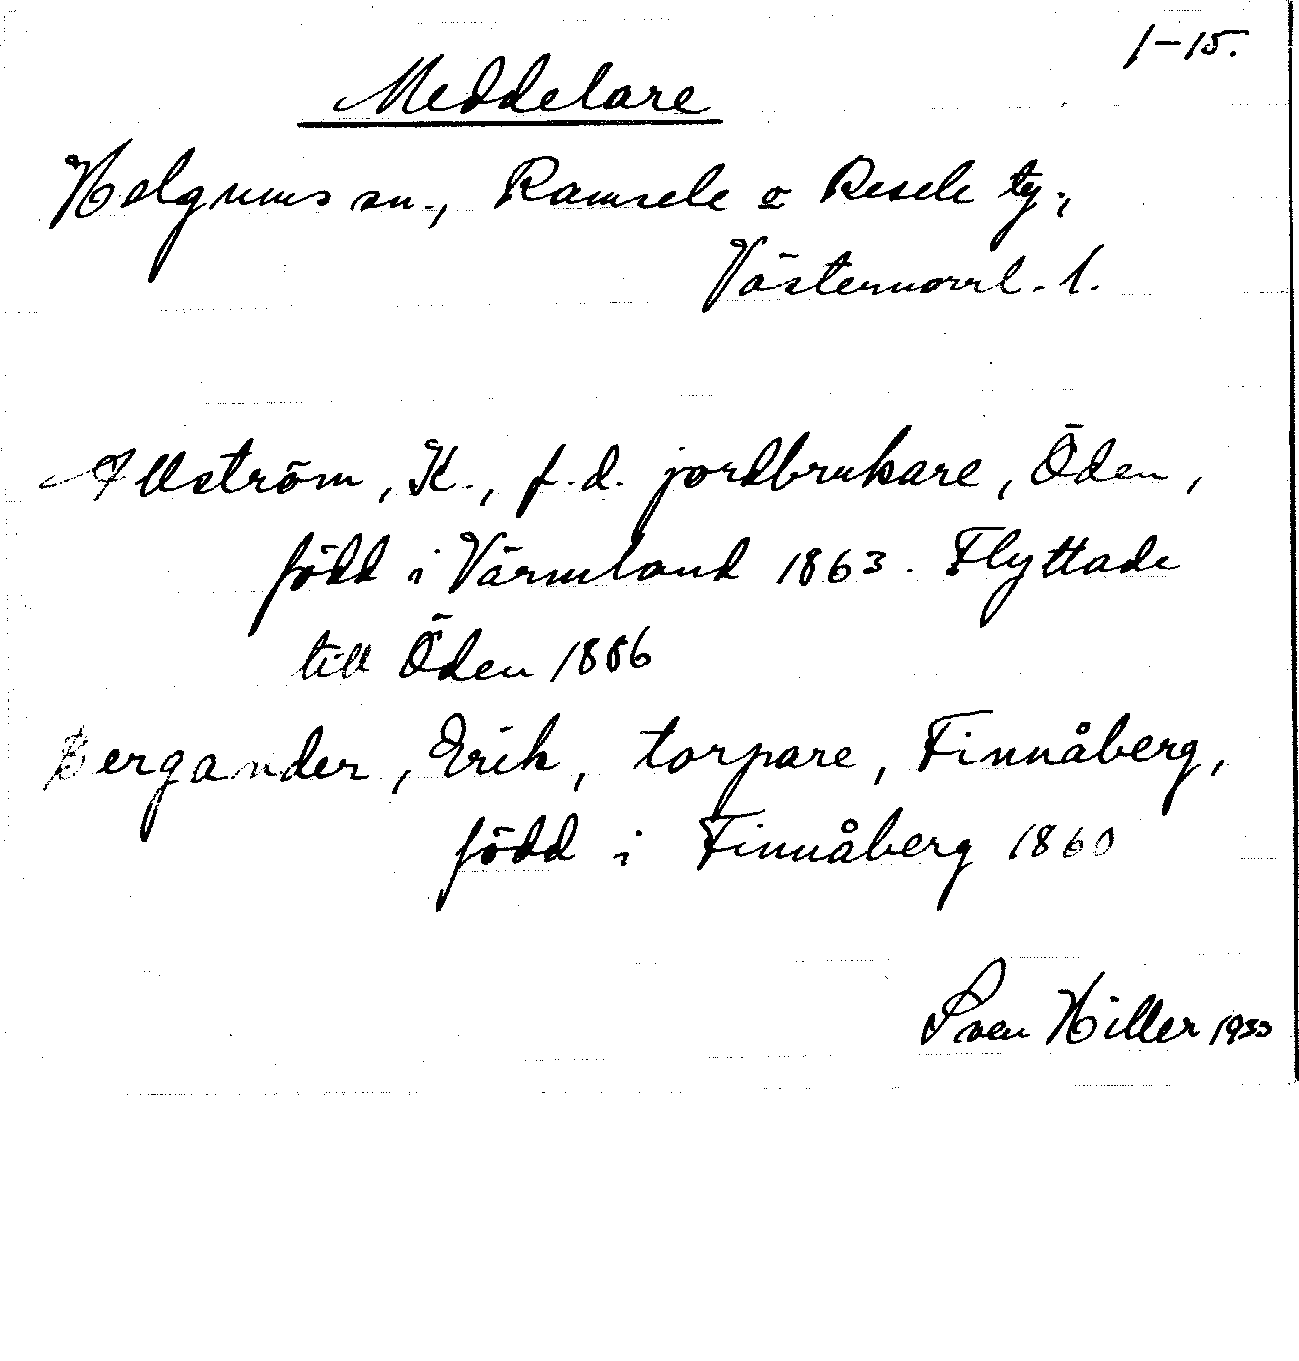 1-15.
Meddelare
Helgums sn., Ramsele o Resele tg.,
Västernorrl. l.
Allström, K., f.d. jordbrukare, Öden,
född i Värmland 1863. Flyttade
till Öden 1886
Bergander, Erik, torpare, Finnåberg,
född i Finnåberg 1860
Sven Hiller 1933